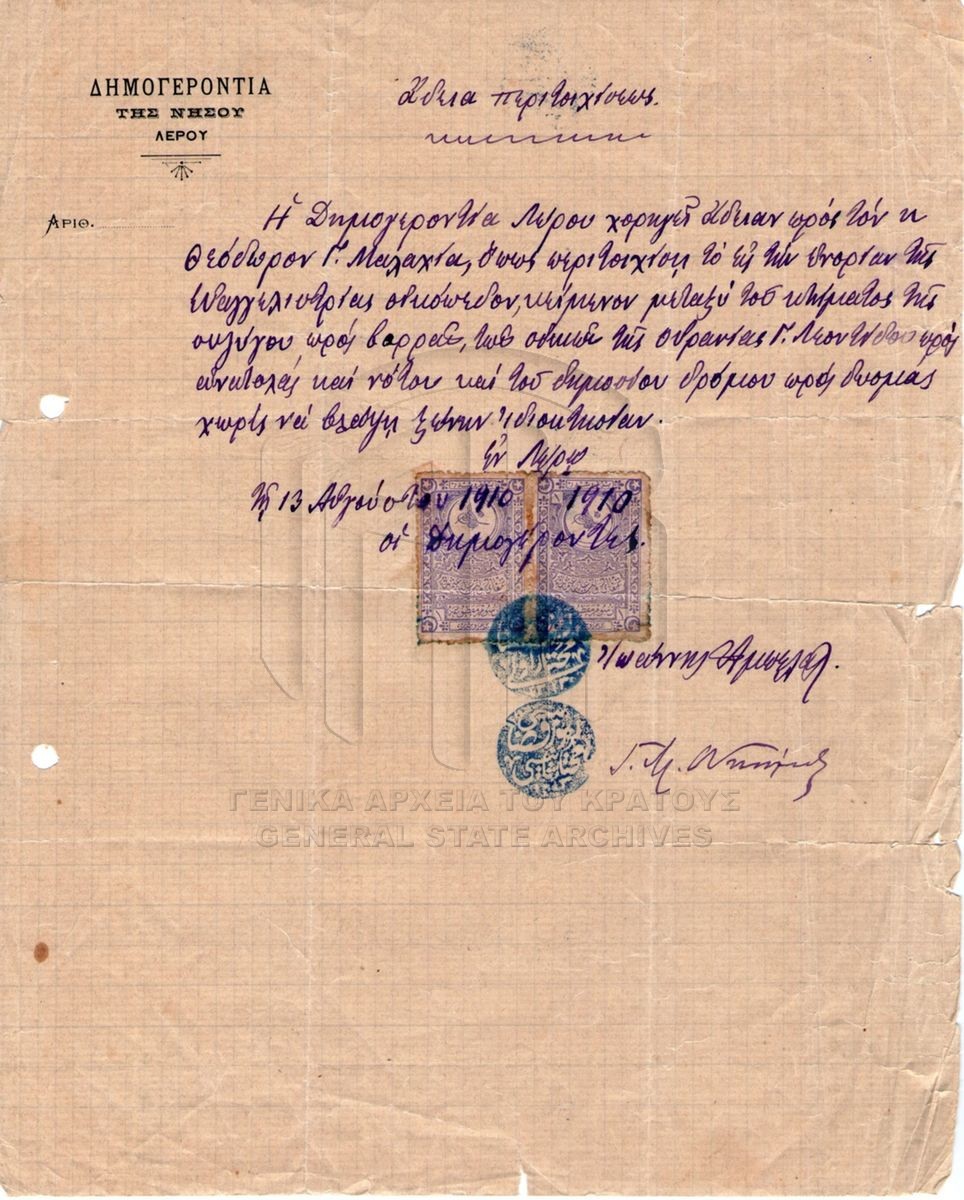 ΔΗΜΟΓΕΡΟΝΤΙΑ
ΤΗΣ ΝΗΣΟΥ
ΛΕΡΟΥ
Ἄδεια περιτοιχίσεως.
ΑΡΙΘ.
Ἡ Δημογεροντία Λέρου χορηγεῖ ἄδειαν πρός τόν κ
Θεόδωρον Γ. Μαλαχία, ὅπως περιτοιχίσῃ τό εἰς τήν ἐνορίαν τῆς
Εὐαγγελιστρίας οἰκόπεδον, κείμενον μεταξύ τοῦ κτήματος τῆς
συζύγου πρός βορρᾶν, τῶν οἰκιῶν τῆς Οὐρανίας Γ. Λεοντίδου πρός
ἀνατολάς καί νότον καί τοῦ δημοσίου δρόμου πρός δυσμάς
χωρίς νά βλάψῃ ξένην ἰδιοκτησίαν.
Ἐν Λέρῳ
τῇ 13 Αὐγούστου 1910 1910
οἱ Δημογέροντες.
Ἰωάννης
ΓΕΝΙΚΑ ΑΡΧΕΙΑ ΤΟΥ ΚΡΑΤΟΥΣ
GENERAL STATE ARCHIVES